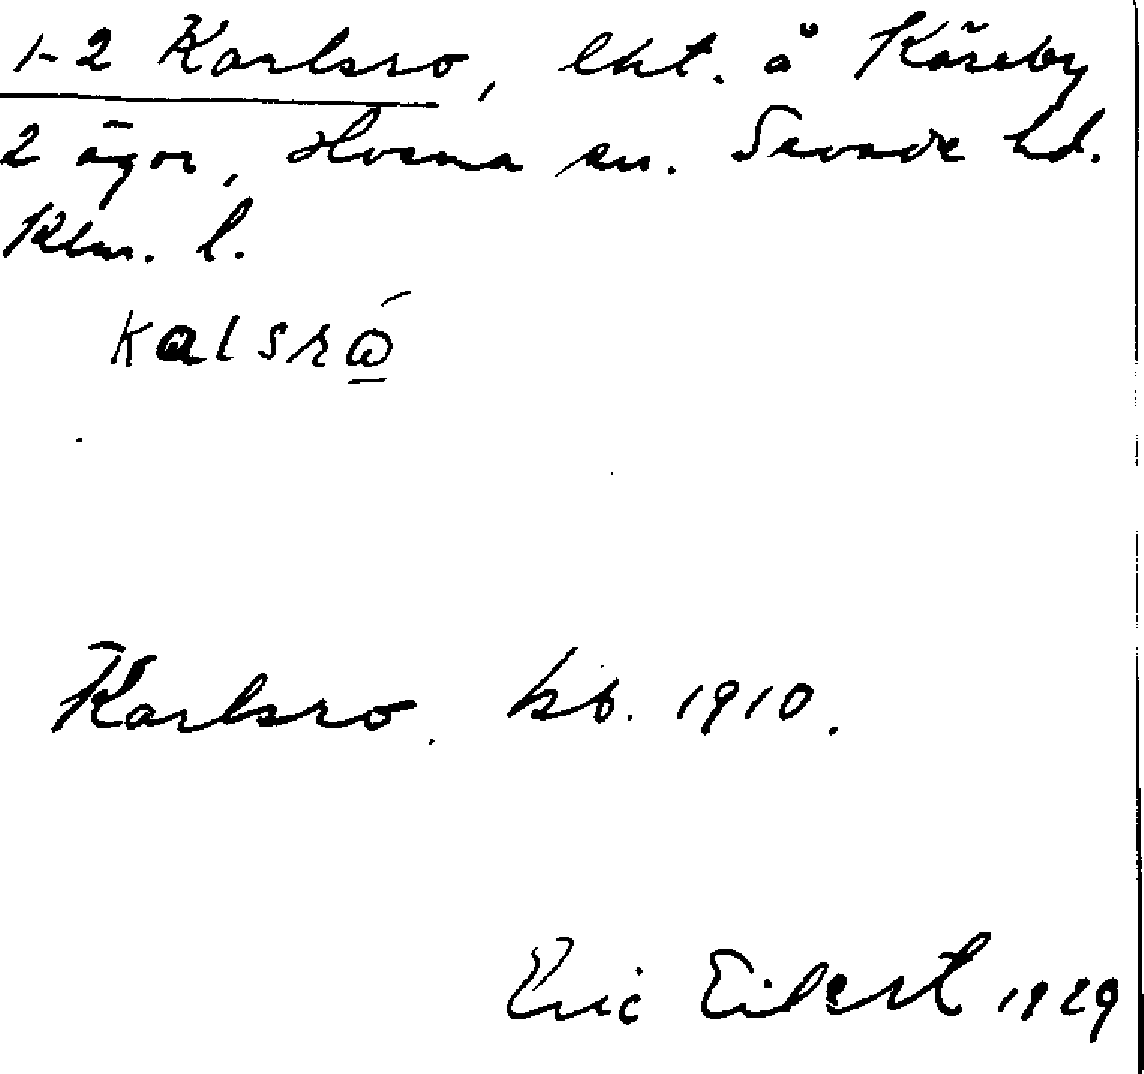 1-2 Karlsro, lht. å Kåreby
2 ägor, sn. Sevede hd.
Klm. l.
Kalsrώ̲
Karlsro. kb. 1910.
Eric Eilert 1929